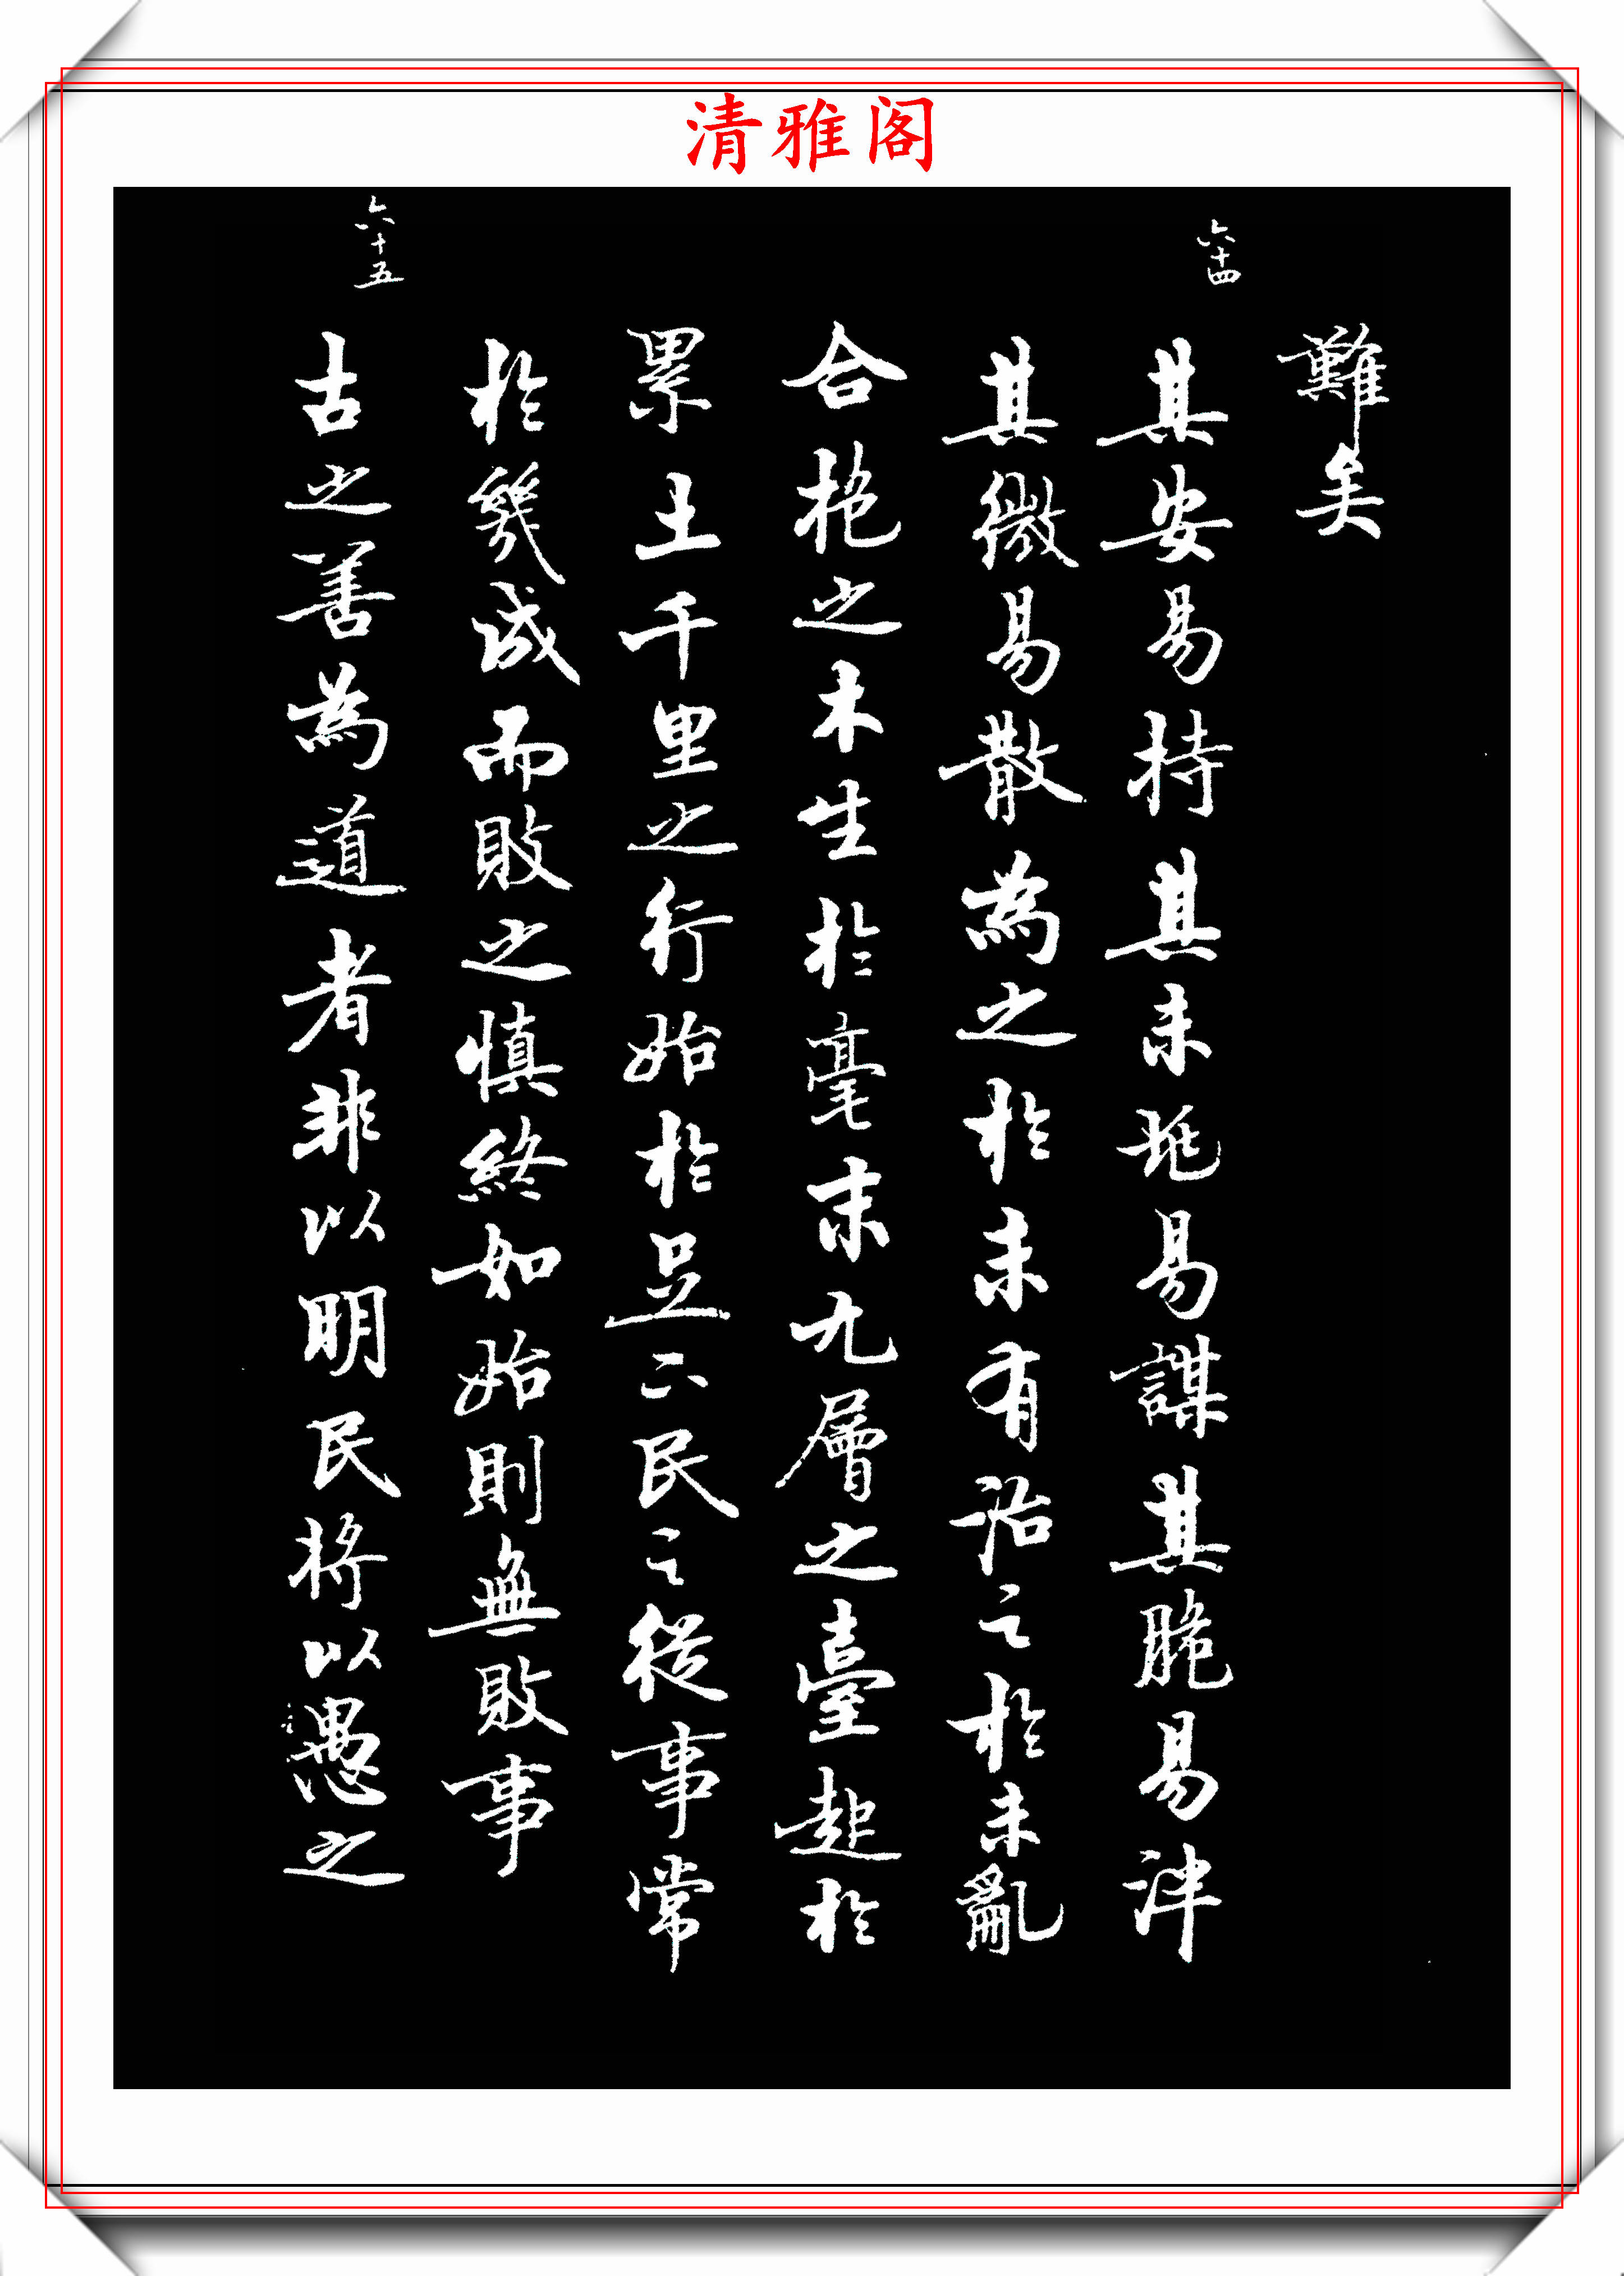 清雅阁
難矣
六十四
其安易持其未兆易謀其脆易泮
其微易散為之於未有治之於未亂
合抱之木生於毫末九層之臺起於
累土千里之行始於足下民之從事常
於幾成而敗之慎終如始則無敗事
六十五
古之善為道者非以明民將以愚之